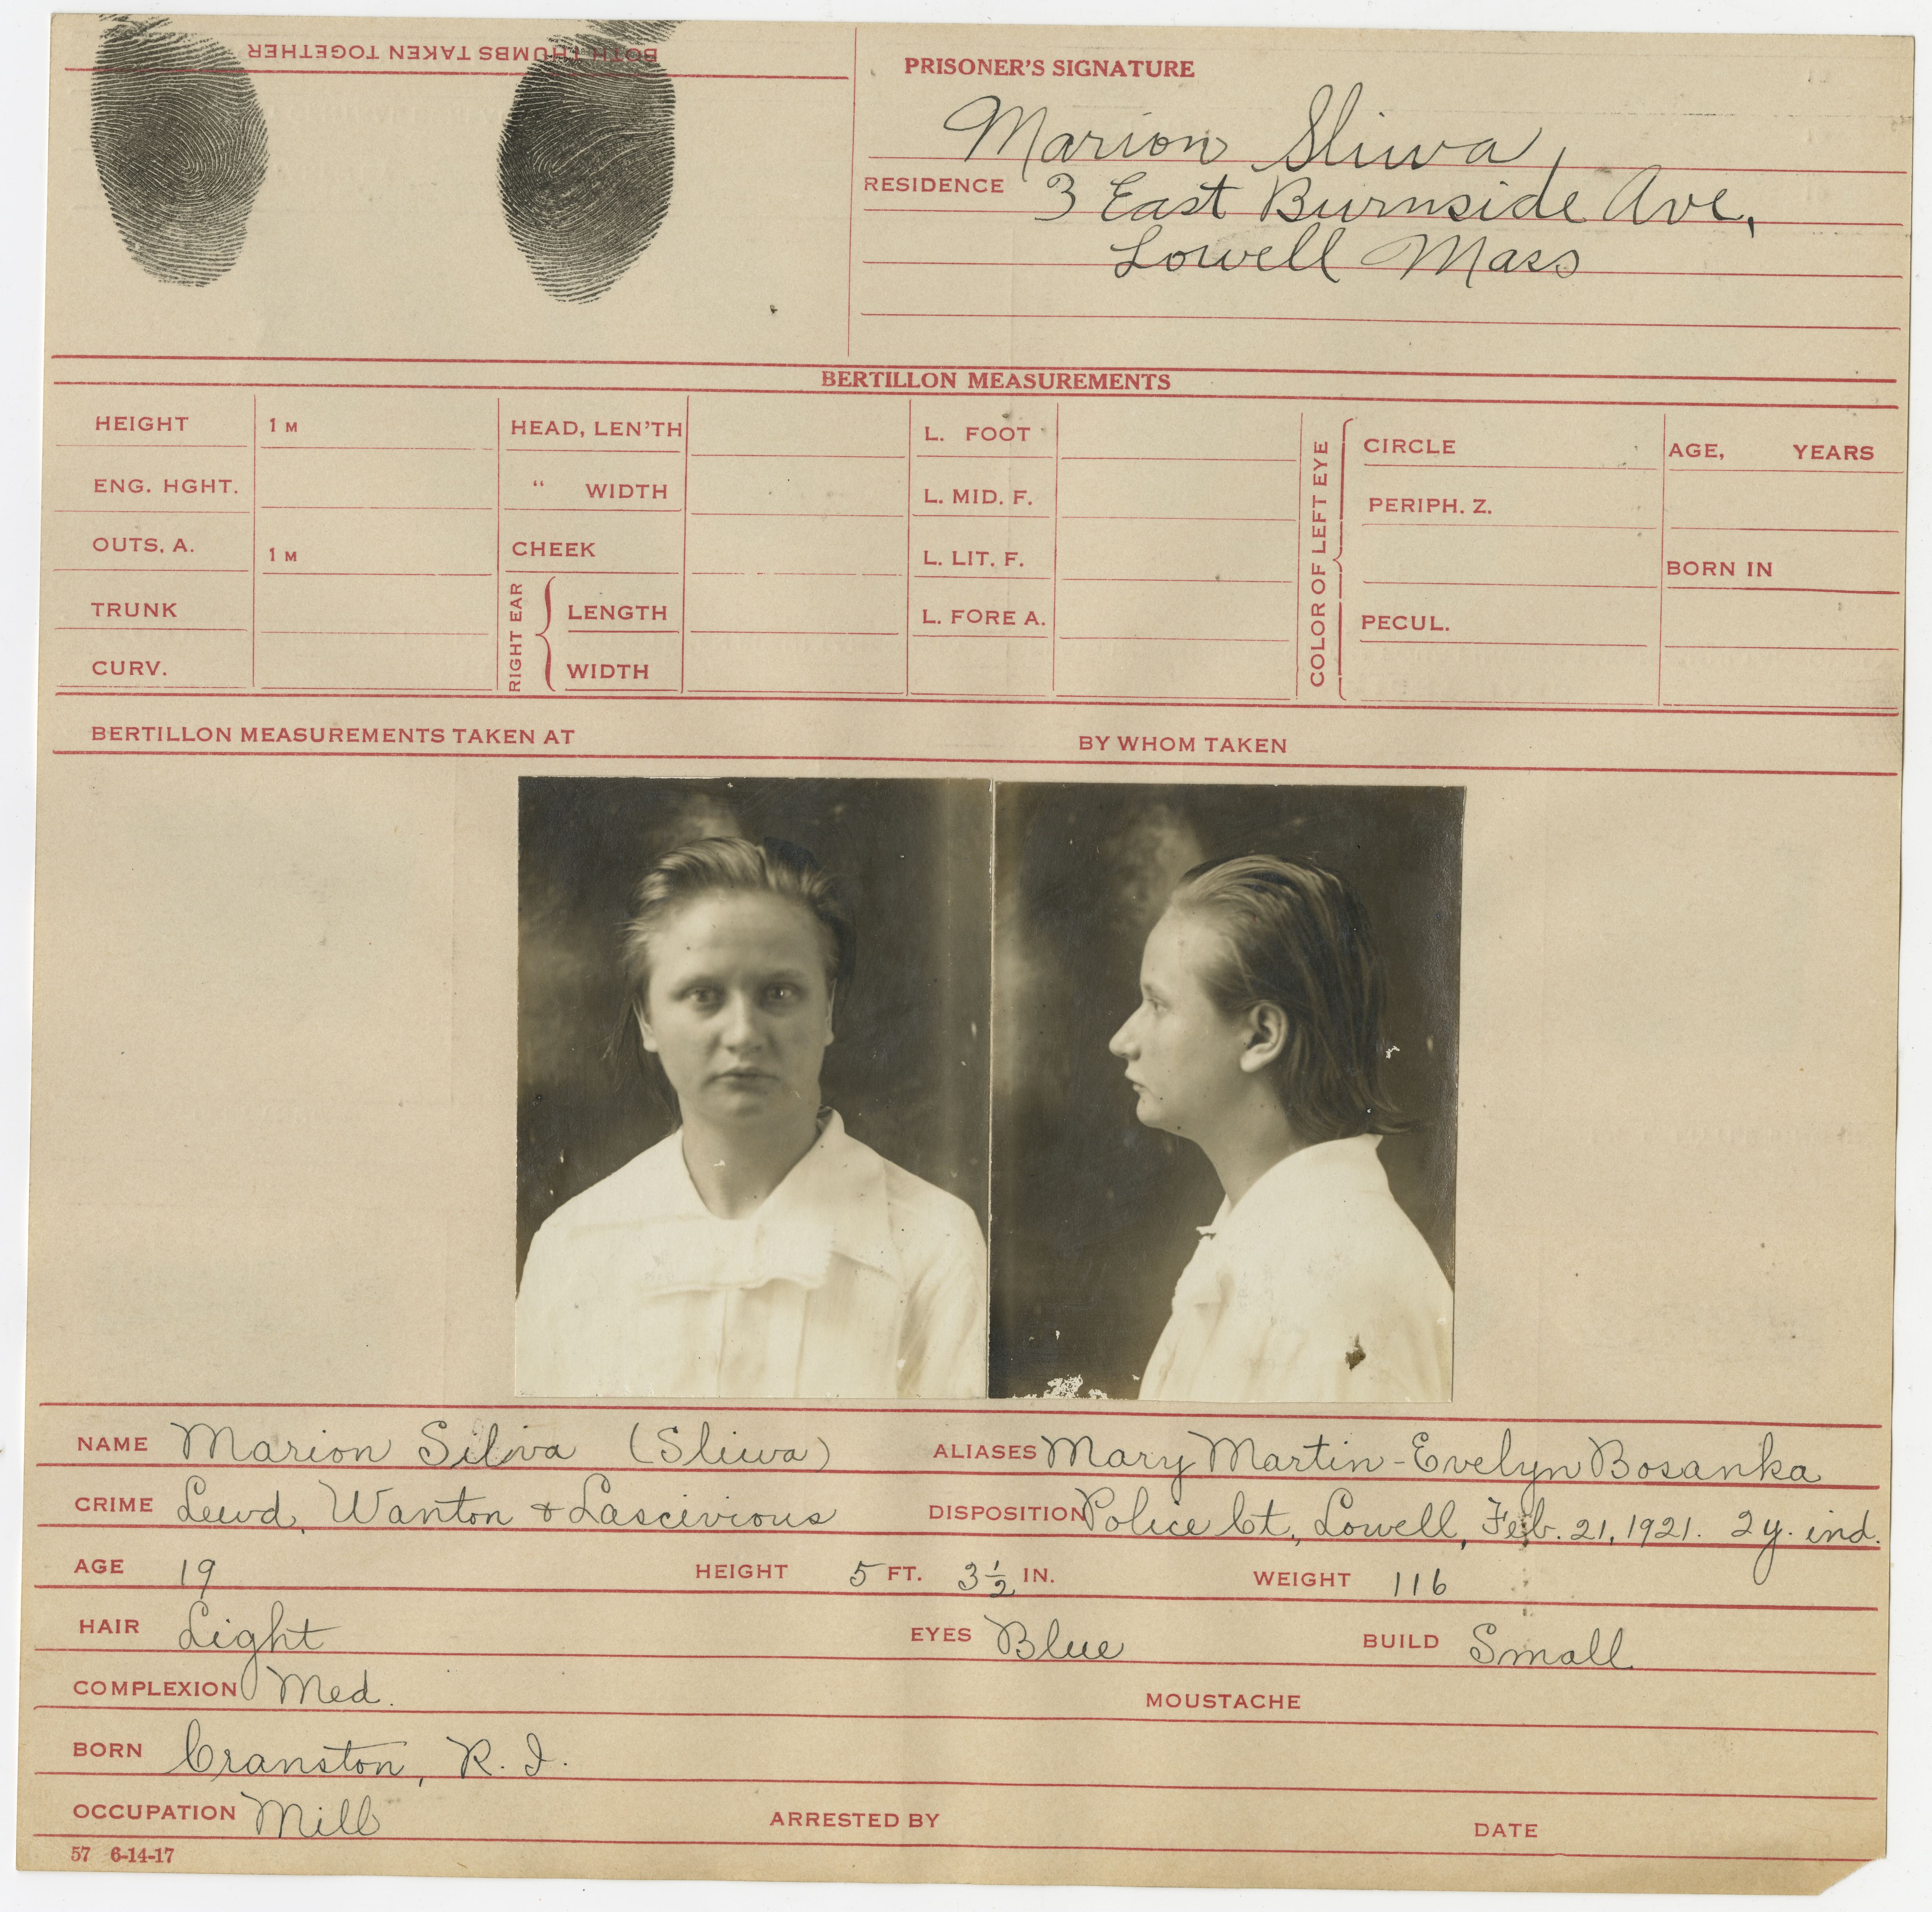 BOTH THUMBS TAKEN TOGETHER
PRISONER'S SIGNATURE
Marion Sliwa,
RESIDENCE 3 East Burnside Ave,
Lowell Mass
BERTILLON MEASUREMENTS
HEIGHT 1 M HEAD, LEN'TH L. FOOT CIRCLE AGE, YEARS
ENG. HGHT. " WIDTH L. MID. F. PERIPH. Z.
OUTS. A. 1 M CHEEK L. LIT. F. BORN IN
TRUNK LENGTH L. FORE A. PECUL.
CURV. WIDTH
RIGHT EAR
COLOR OF LEFT EYE
BERTILLON MEASUREMENTS TAKEN AT BY WHOM TAKEN
NAME Marion Silva (Sliwa) ALIASES Mary Martin - Evelyn Bosanka
CRIME Lewd, Wanton & Lascivious DISPOSITION Police Ct., Lowell, Feb. 21, 1921. 2y. ind.
AGE 19 HEIGHT 5 FT. 3 1/2 IN. WEIGHT 116
HAIR Light EYES Blue BUILD Small
COMPLEXION Med. MOUSTACHE
BORN Cranston, R. I.
OCCUPATION Mill ARRESTED BY DATE
57 6-14-17